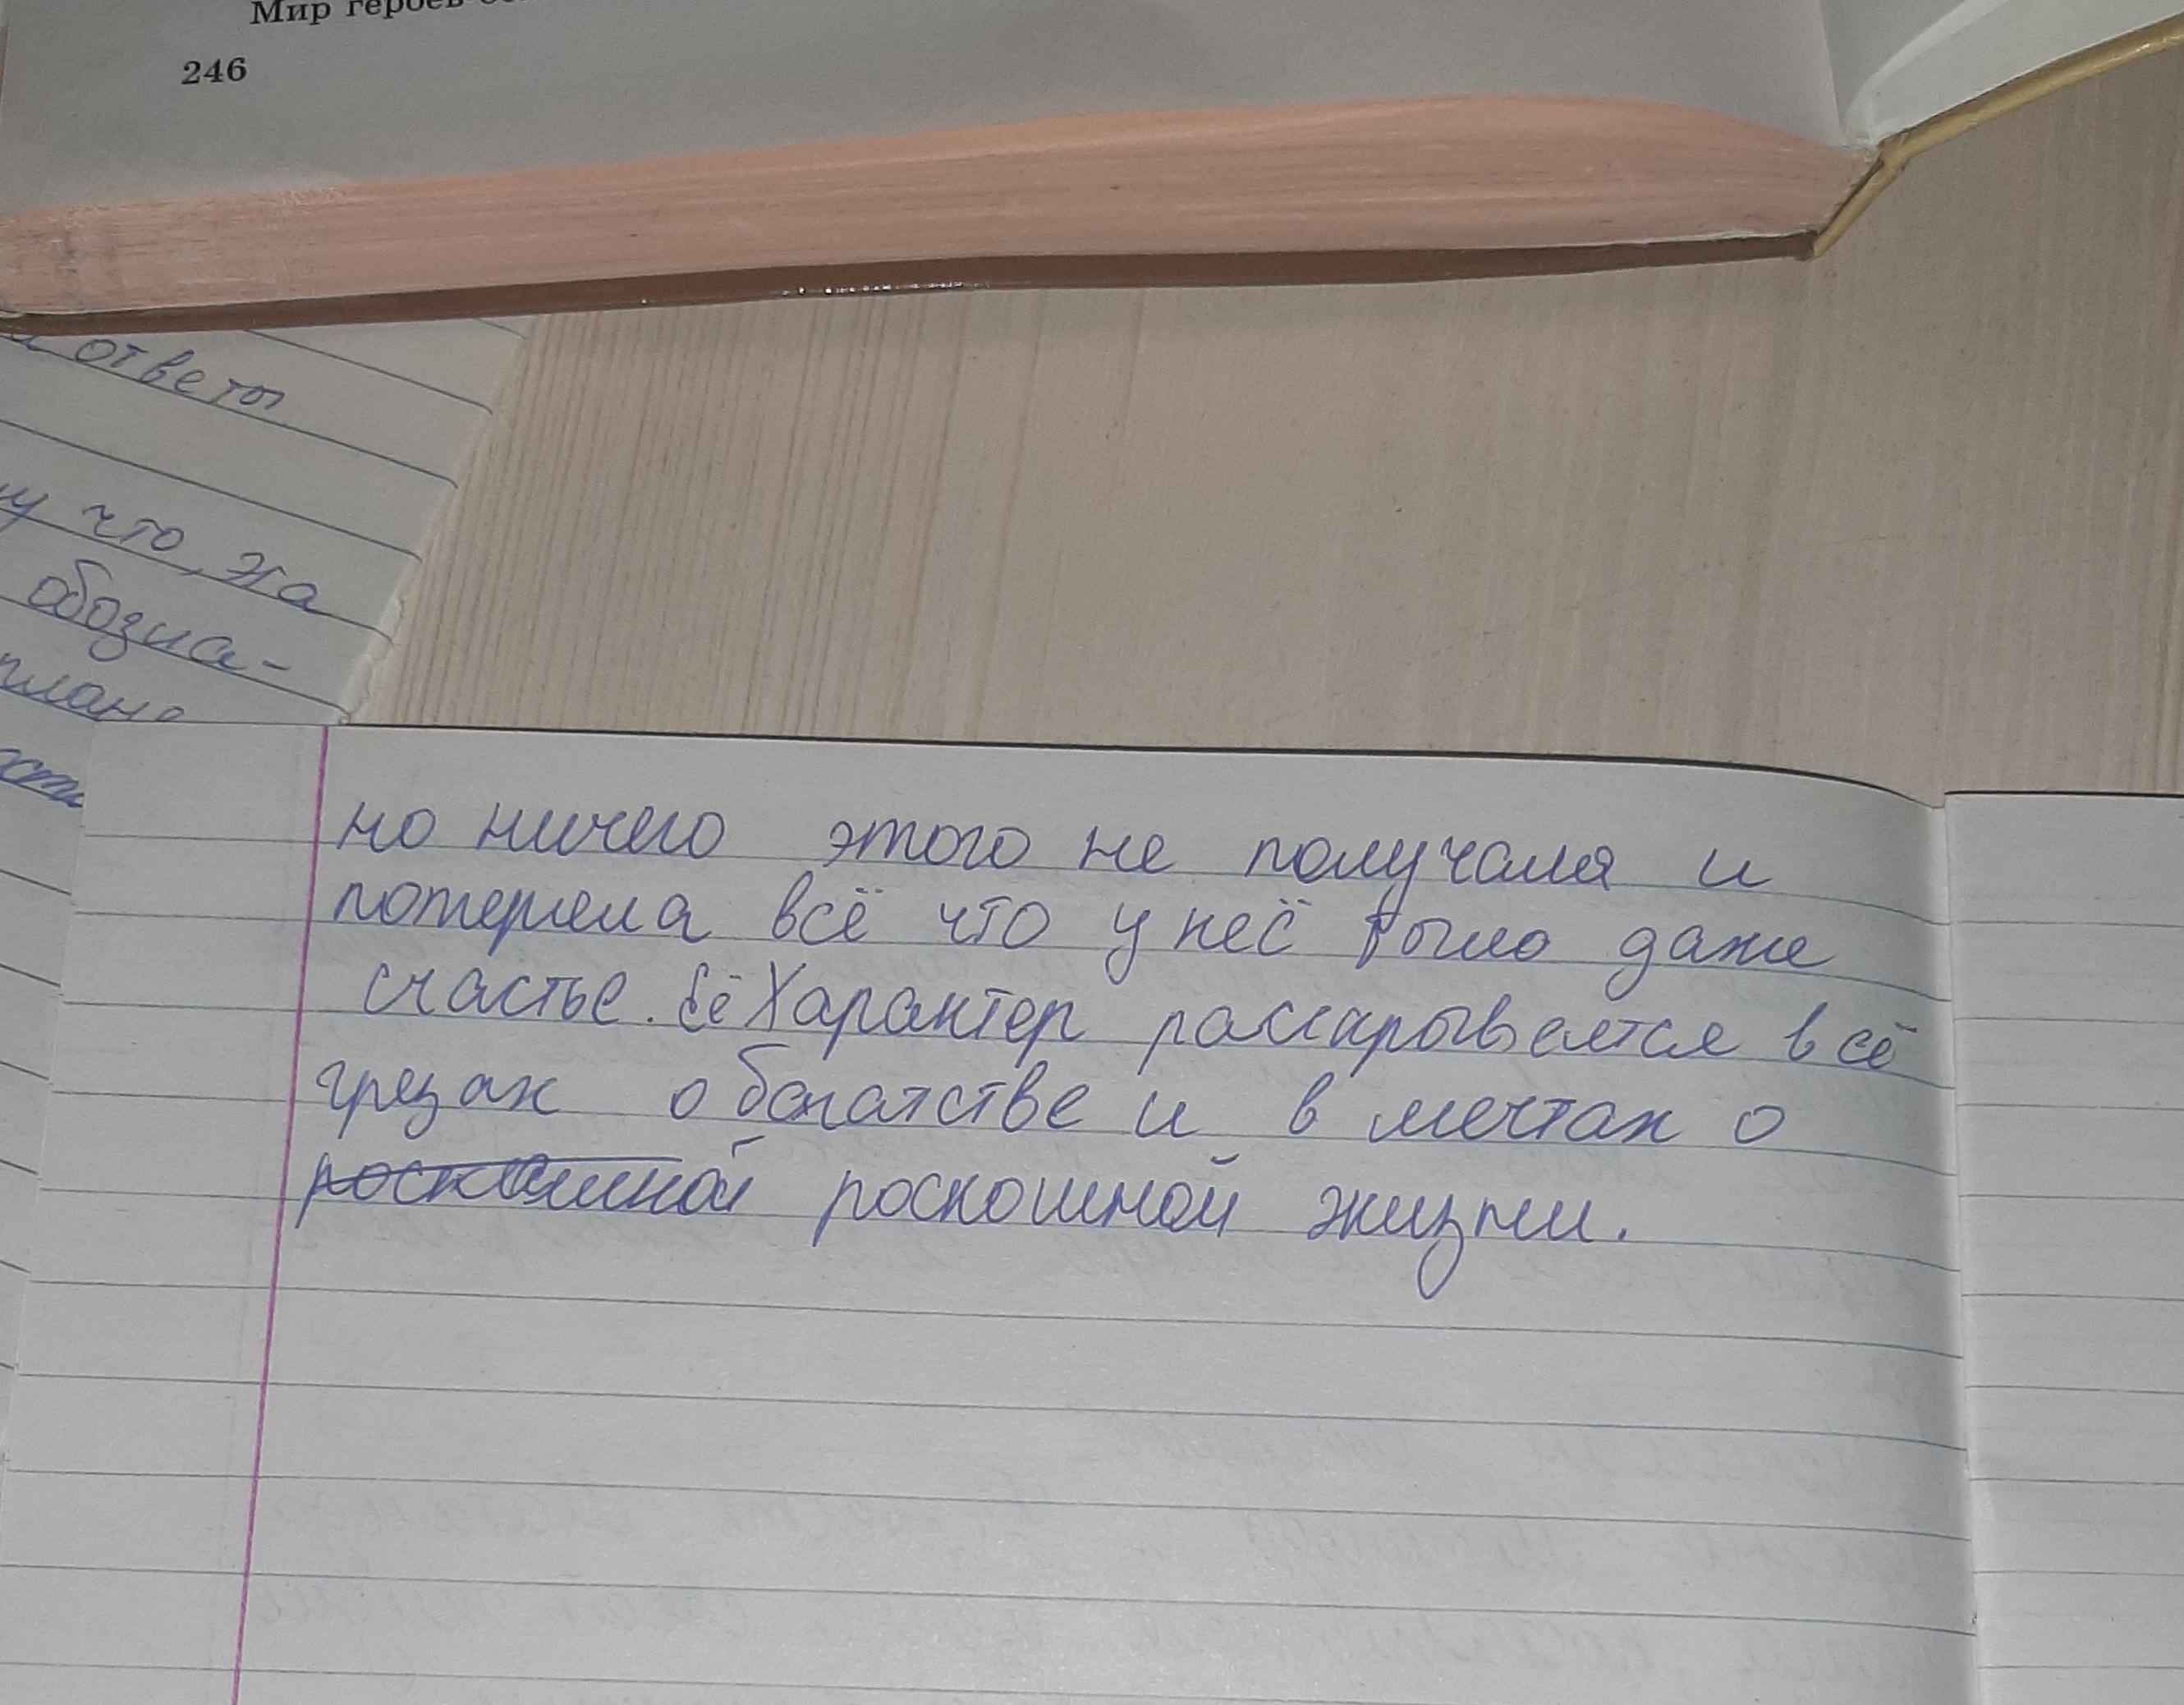 Мир героев
246
ответы
что, на
обозна-
плане
но ничего этого не получала и
потеряла всё что у неё было даже
счастье. Её Характер раскрывается в её
грезах о богатстве и в мечтах о
роскошной роскошной жизни.